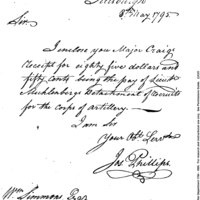 8th May 1795.
Sir,
I inclose you Major Craig's
receipt for eighty five dollars and
fifty cents being the pay of Lieut
Muhlenbergs Detachment of Recruits
for the Corps of Artillery —
I am Sir
Your Obt. Servt
Jno Phillips
Wm Simmons Esqr